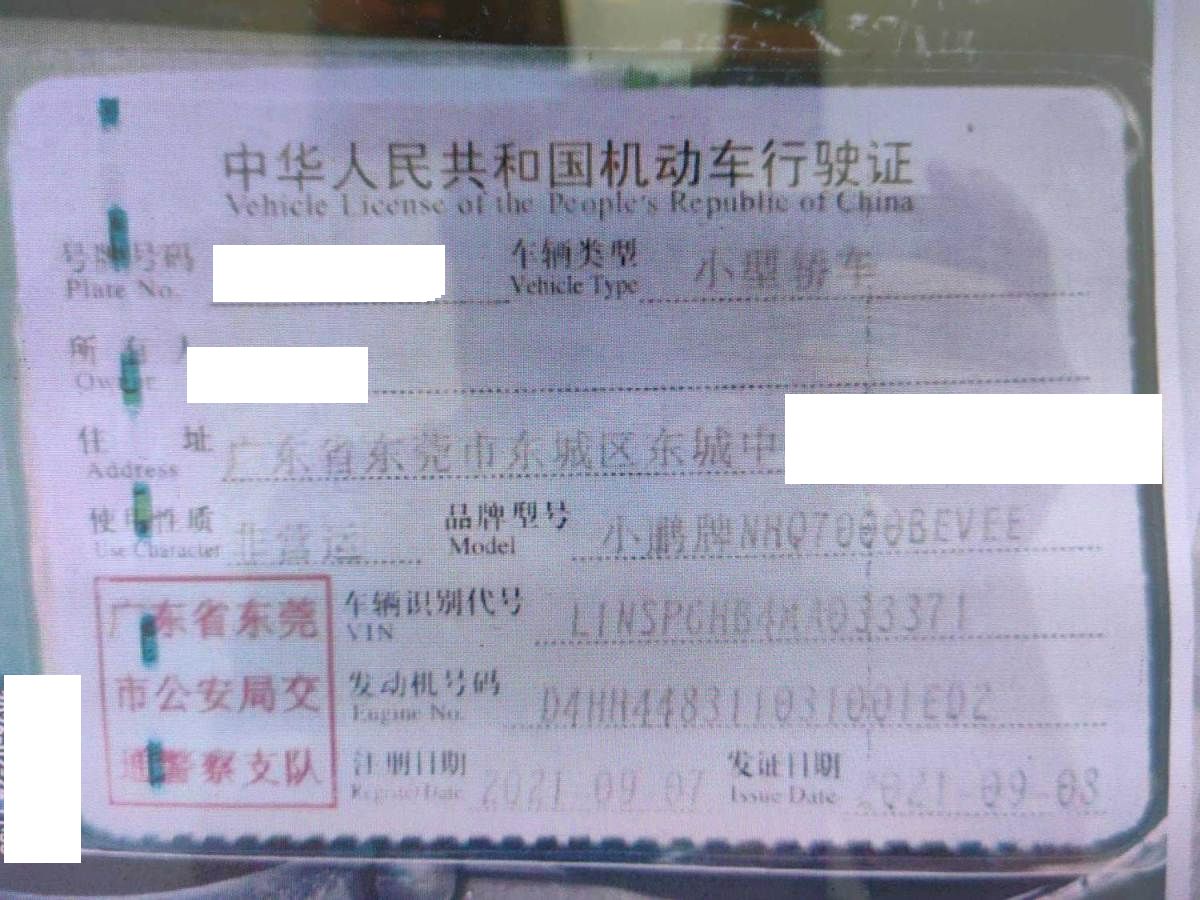 中华人民共和国机动车行驶证
Vehicle License of the People's Republic of China
号牌号码 车辆类型 小型轿车
Plate No. Vehicle Type
所有人
Owner
住址 广东省东莞市东城区东城中
Address
使用性质 非营运 品牌型号 小鹏牌NHQ7000BEVEE
Use Character Model
广东省东莞 车辆识别代号
VIN
市公安局交 发动机号码
Engine No.
通警察支队 注册日期 2021 09 07 发证日期 2021-09-08
Register Date Issue Date